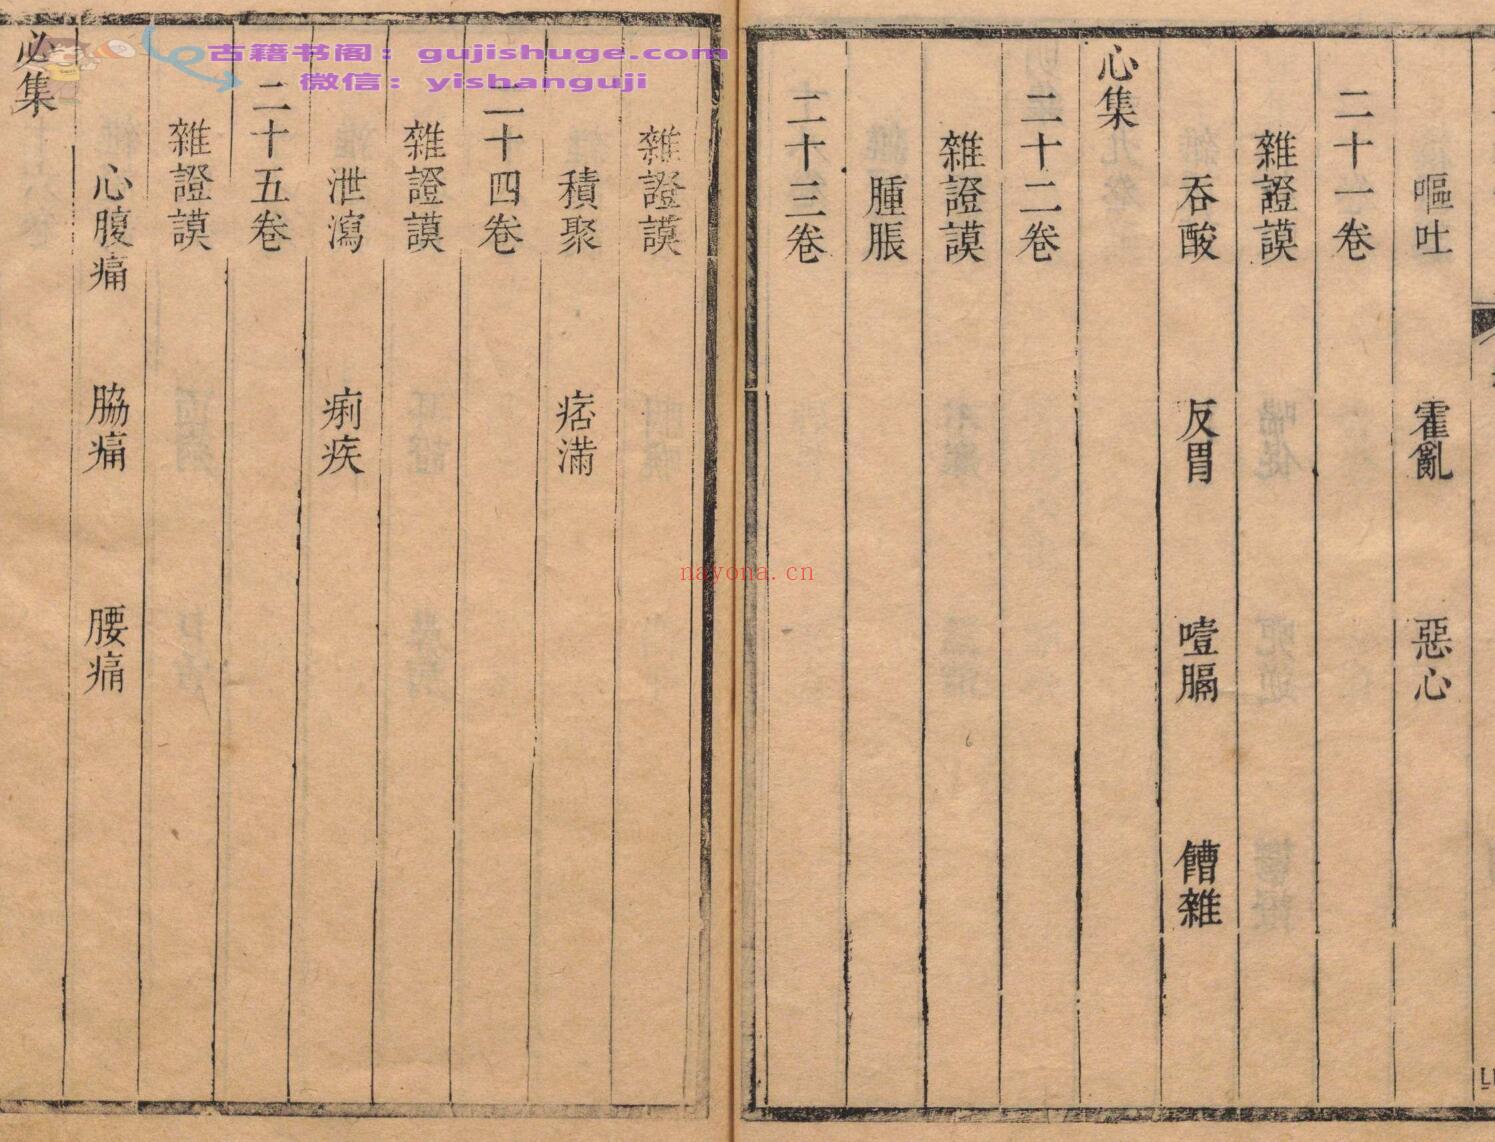 嘔吐 霍亂 惡心
二十一卷
雜證謨
吞酸 反胃 噎膈 饐雜
心集
二十二卷
雜證謨
腫脹
二十三卷
雜證謨
積聚 痞滿
二十四卷
雜證謨
泄瀉 痢疾
二十五卷
雜證謨
心腹痛 脇痛 腰痛
必集
古籍书阁：gujishuge.com
微信：yishanguji
nayona.cn